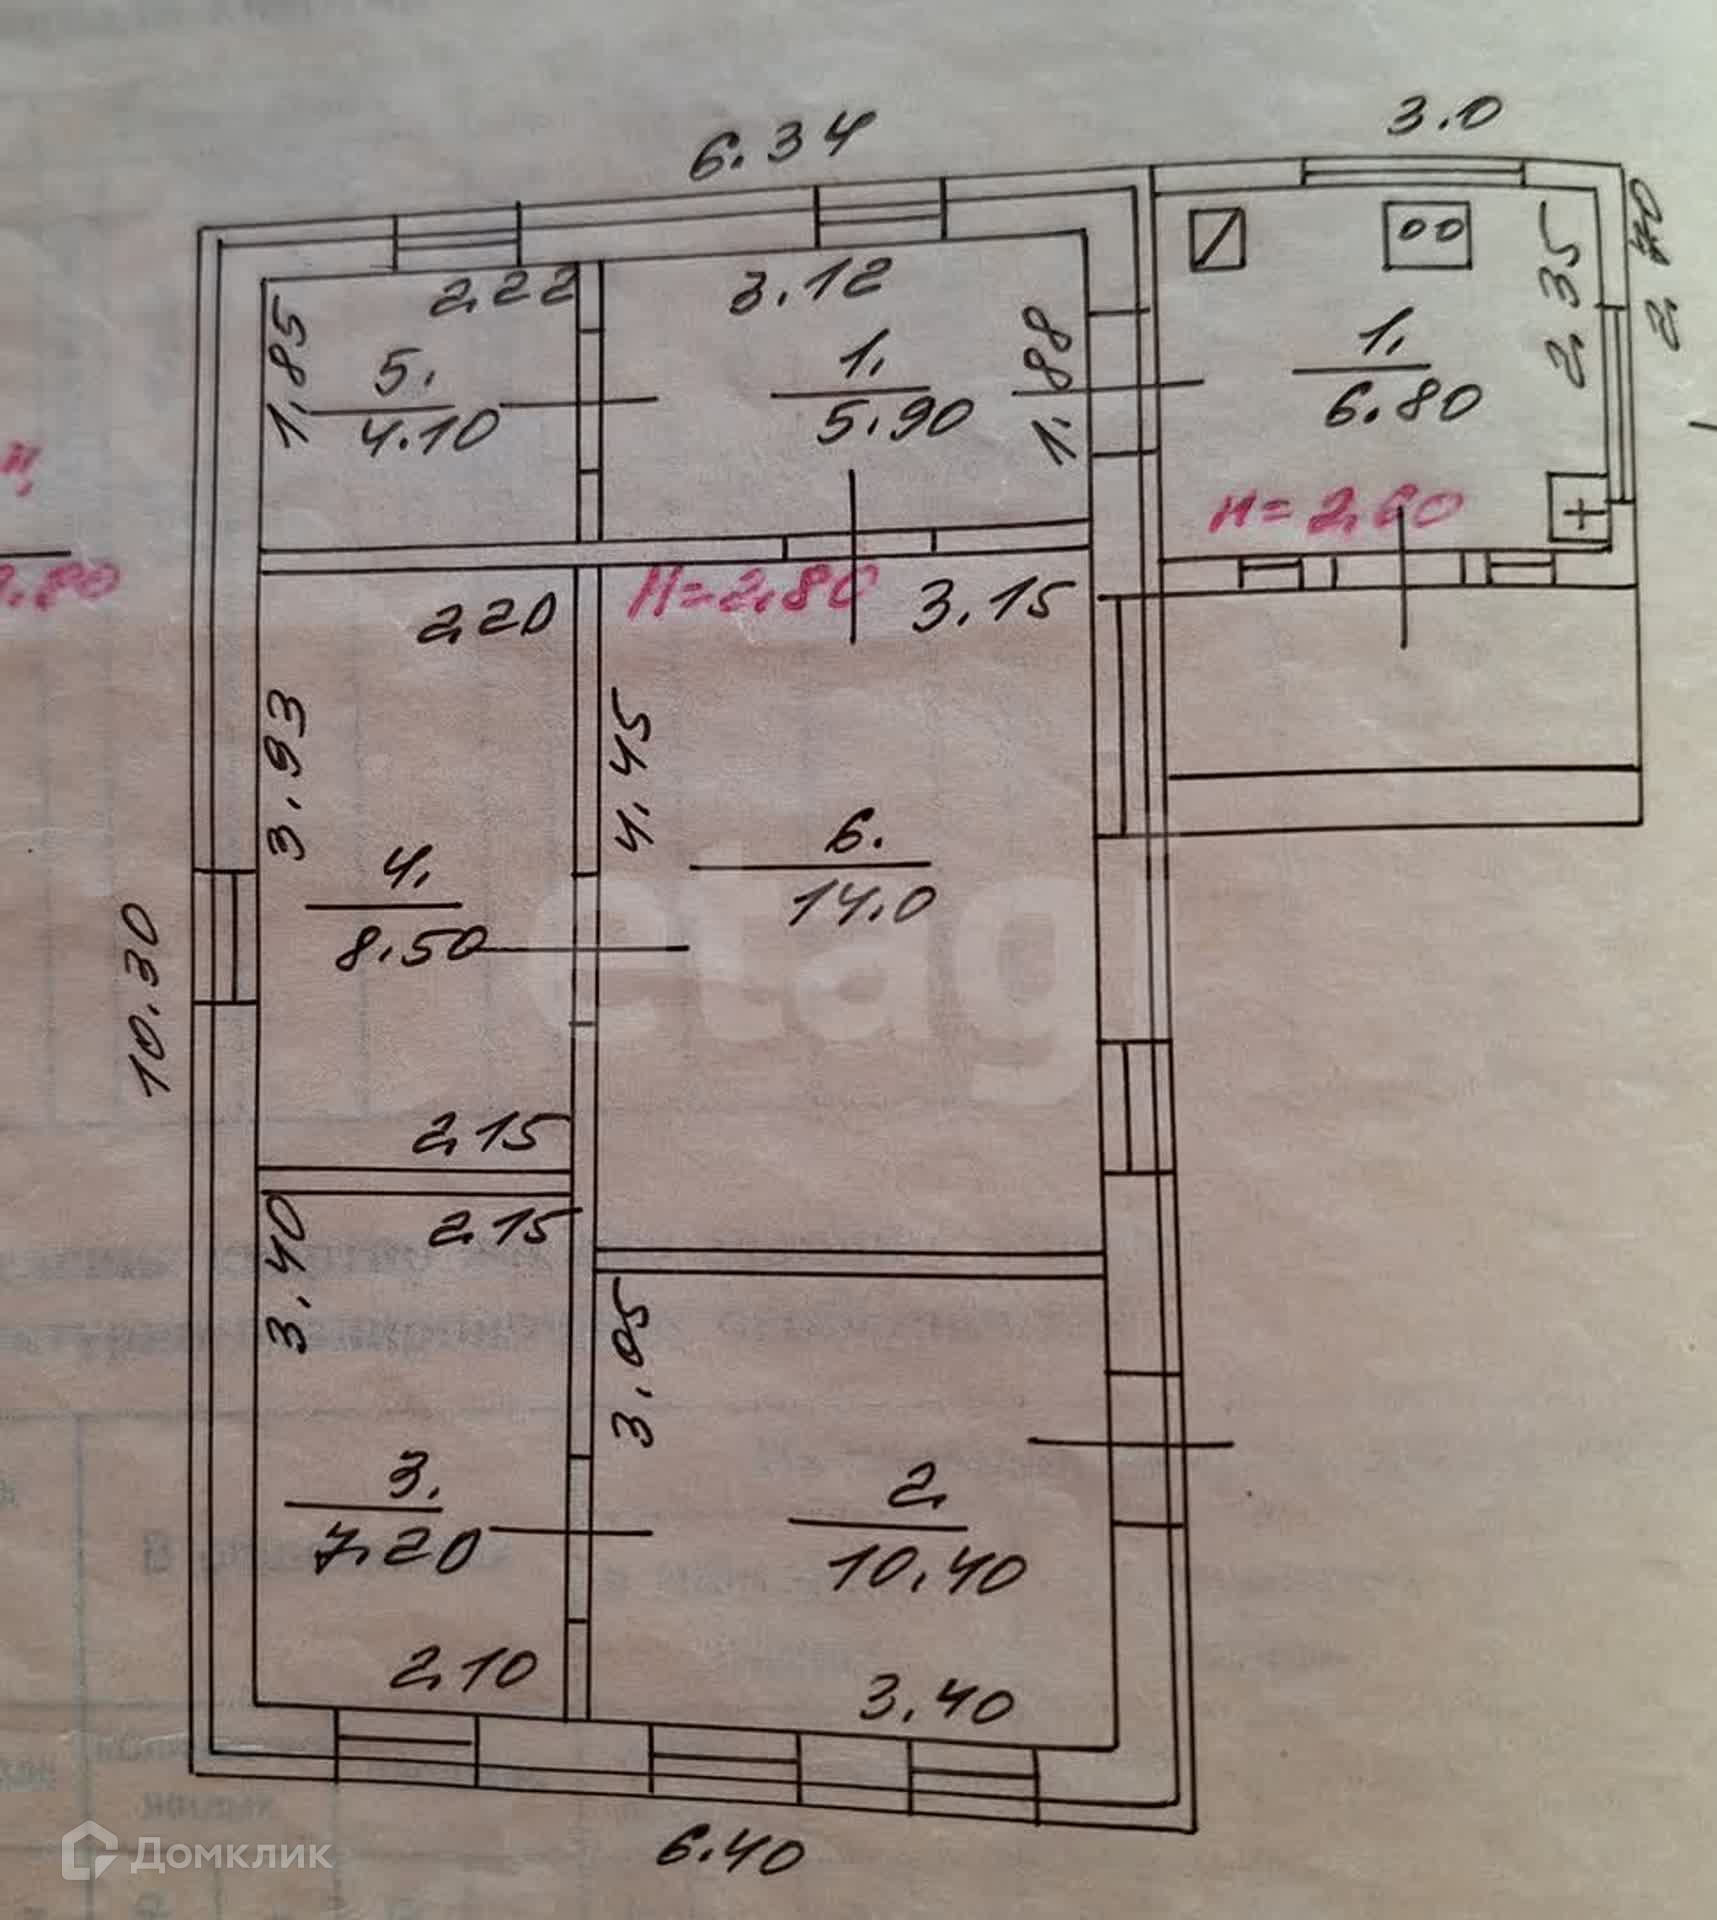 6.34
3.0
2.70
2.22
3.12
2.35
1.85
5.
4.10
1.
5.90
1.88
1.
6.80
H=2.60
H=2.80
2.20
3.15
3.93
4.45
4.
8.50
6.
14.0
etagi
10.30
2.15
2.15
3.40
3.05
3.
7.20
2.
10.40
2.10
3.40
6.40
Домклик